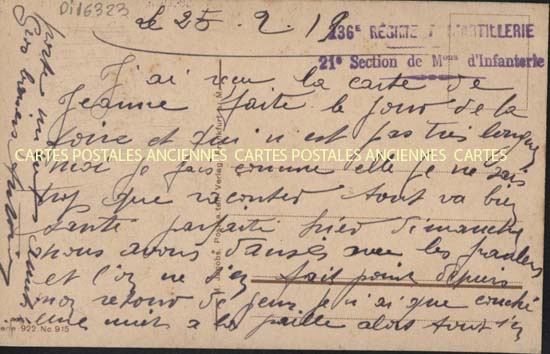 Di16323
le 25 - 2 19
236E RÉGIME D'ARTILLERIE
21e Section de Mons d'Infanterie
J'ai reçu la carte de
Jeanne faite le jour de la
foire et qui n'est pas très longue
moi je fais comme elle je ne sais
CARTES POSTALES ANCIENNES CARTES POSTALES ANCIENNES CARTES POSTALES ANCIENNES
trop que raconter tout va bien
santé parfaite hier dimanche
nous avons dansés avec les
et l'on ne s'en fait point depuis
mon retour de je n'ai que couché
une nuit à la paille alors tout s'en
votre
Gros
M. Jacobs, Verlag, Frankfurt
Serie 922 No. 915